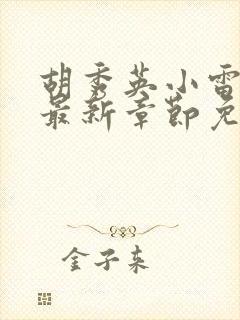 胡秀英小雷
最新章节免
金子来